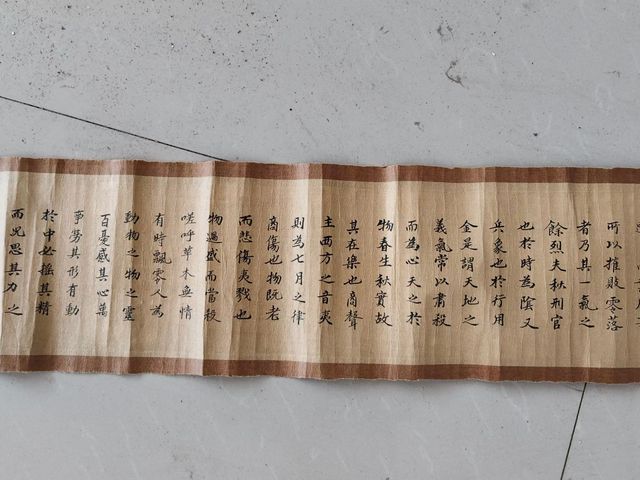 所以摧敗零落
者乃其一氣之
餘烈夫秋刑官
也於時為陰又
兵象也於行用
金是謂天地之
義氣常以肅殺
而為心天之於
物春生秋實故
其在樂也商聲
主西方之音夷
則為七月之律
商傷也物既老
而悲傷夷戮也
物過盛而當殺
嗟呼草木無情
有時飄零人為
動物之物之靈
百憂感其心萬
事勞其形有動
於中必搖其精
而況思其力之